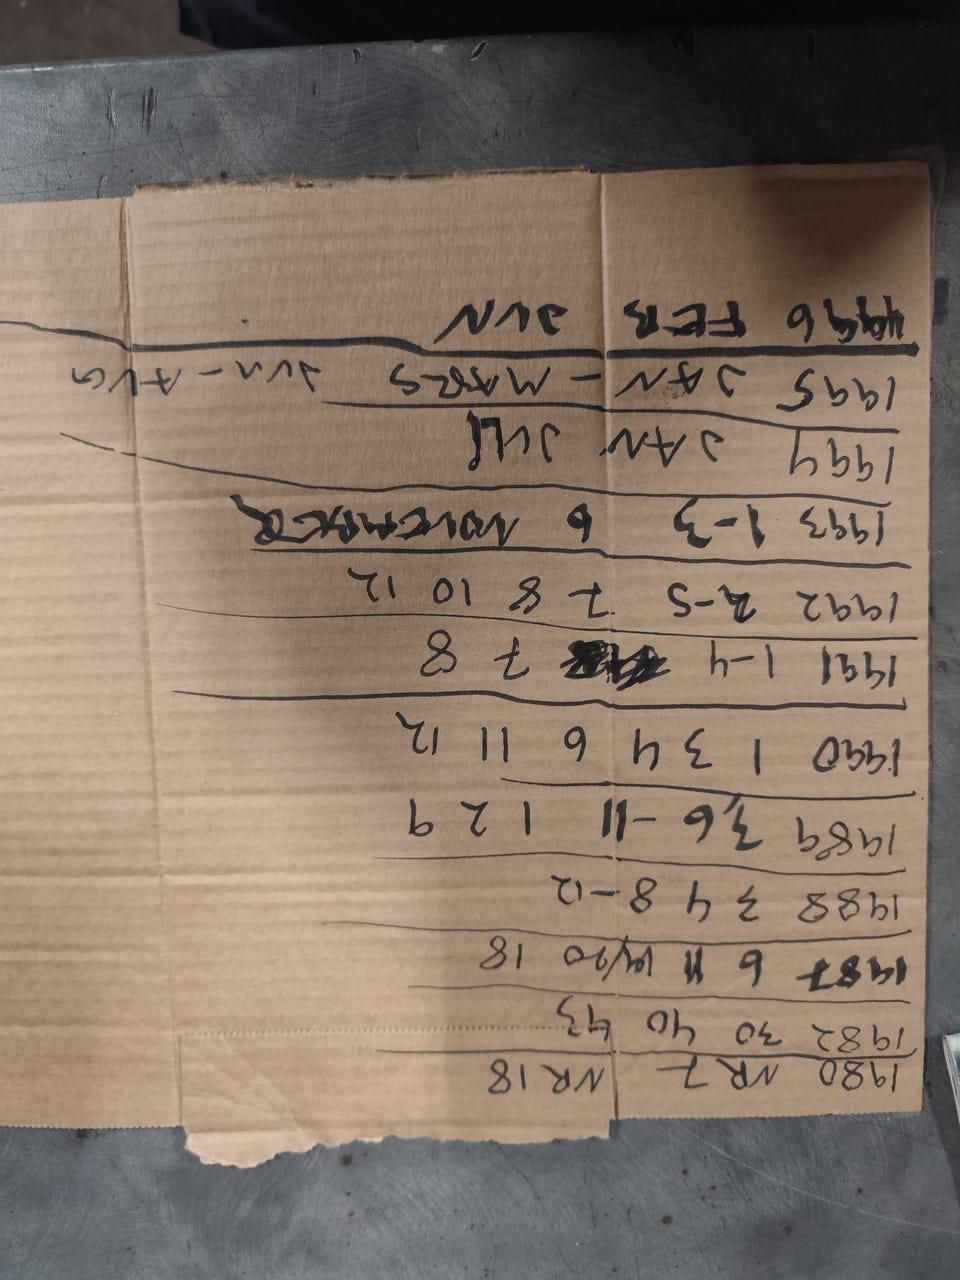 1980 NR 7 NR 18
1982 30 40 43
1987 6 11 19/20 18
1988 3 4 8-12
1989 3,6-11 1 2 9
1990 1 3 4 6 11 12
1991 1-4 7 8
1992 2-5 7 8 10 12
1993 1-3 6 NOVEMBER
1994 JAN JULI
1995 JAN - MARS JUN - AUG
1996 FEB JUN